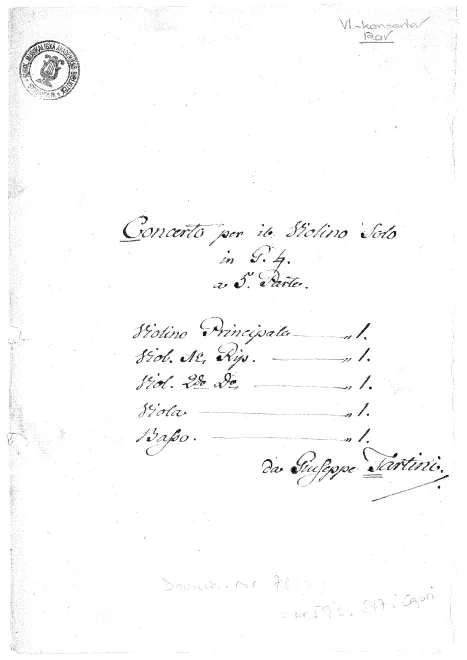 Vl.-konserter
Rar
KUNGL. MUSIKALISKA AKADEMIENS BIBLIOTEK
Concerto per il Violino Solo
in G. 4.
a 5. Parte.
Violino Principale „ 1.
Viol. 1e, Rip. „ 1.
Viol. 2de Do, „ 1.
Viola „ 1.
Basso. „ 1.
da Giuseppe Tartini.
78